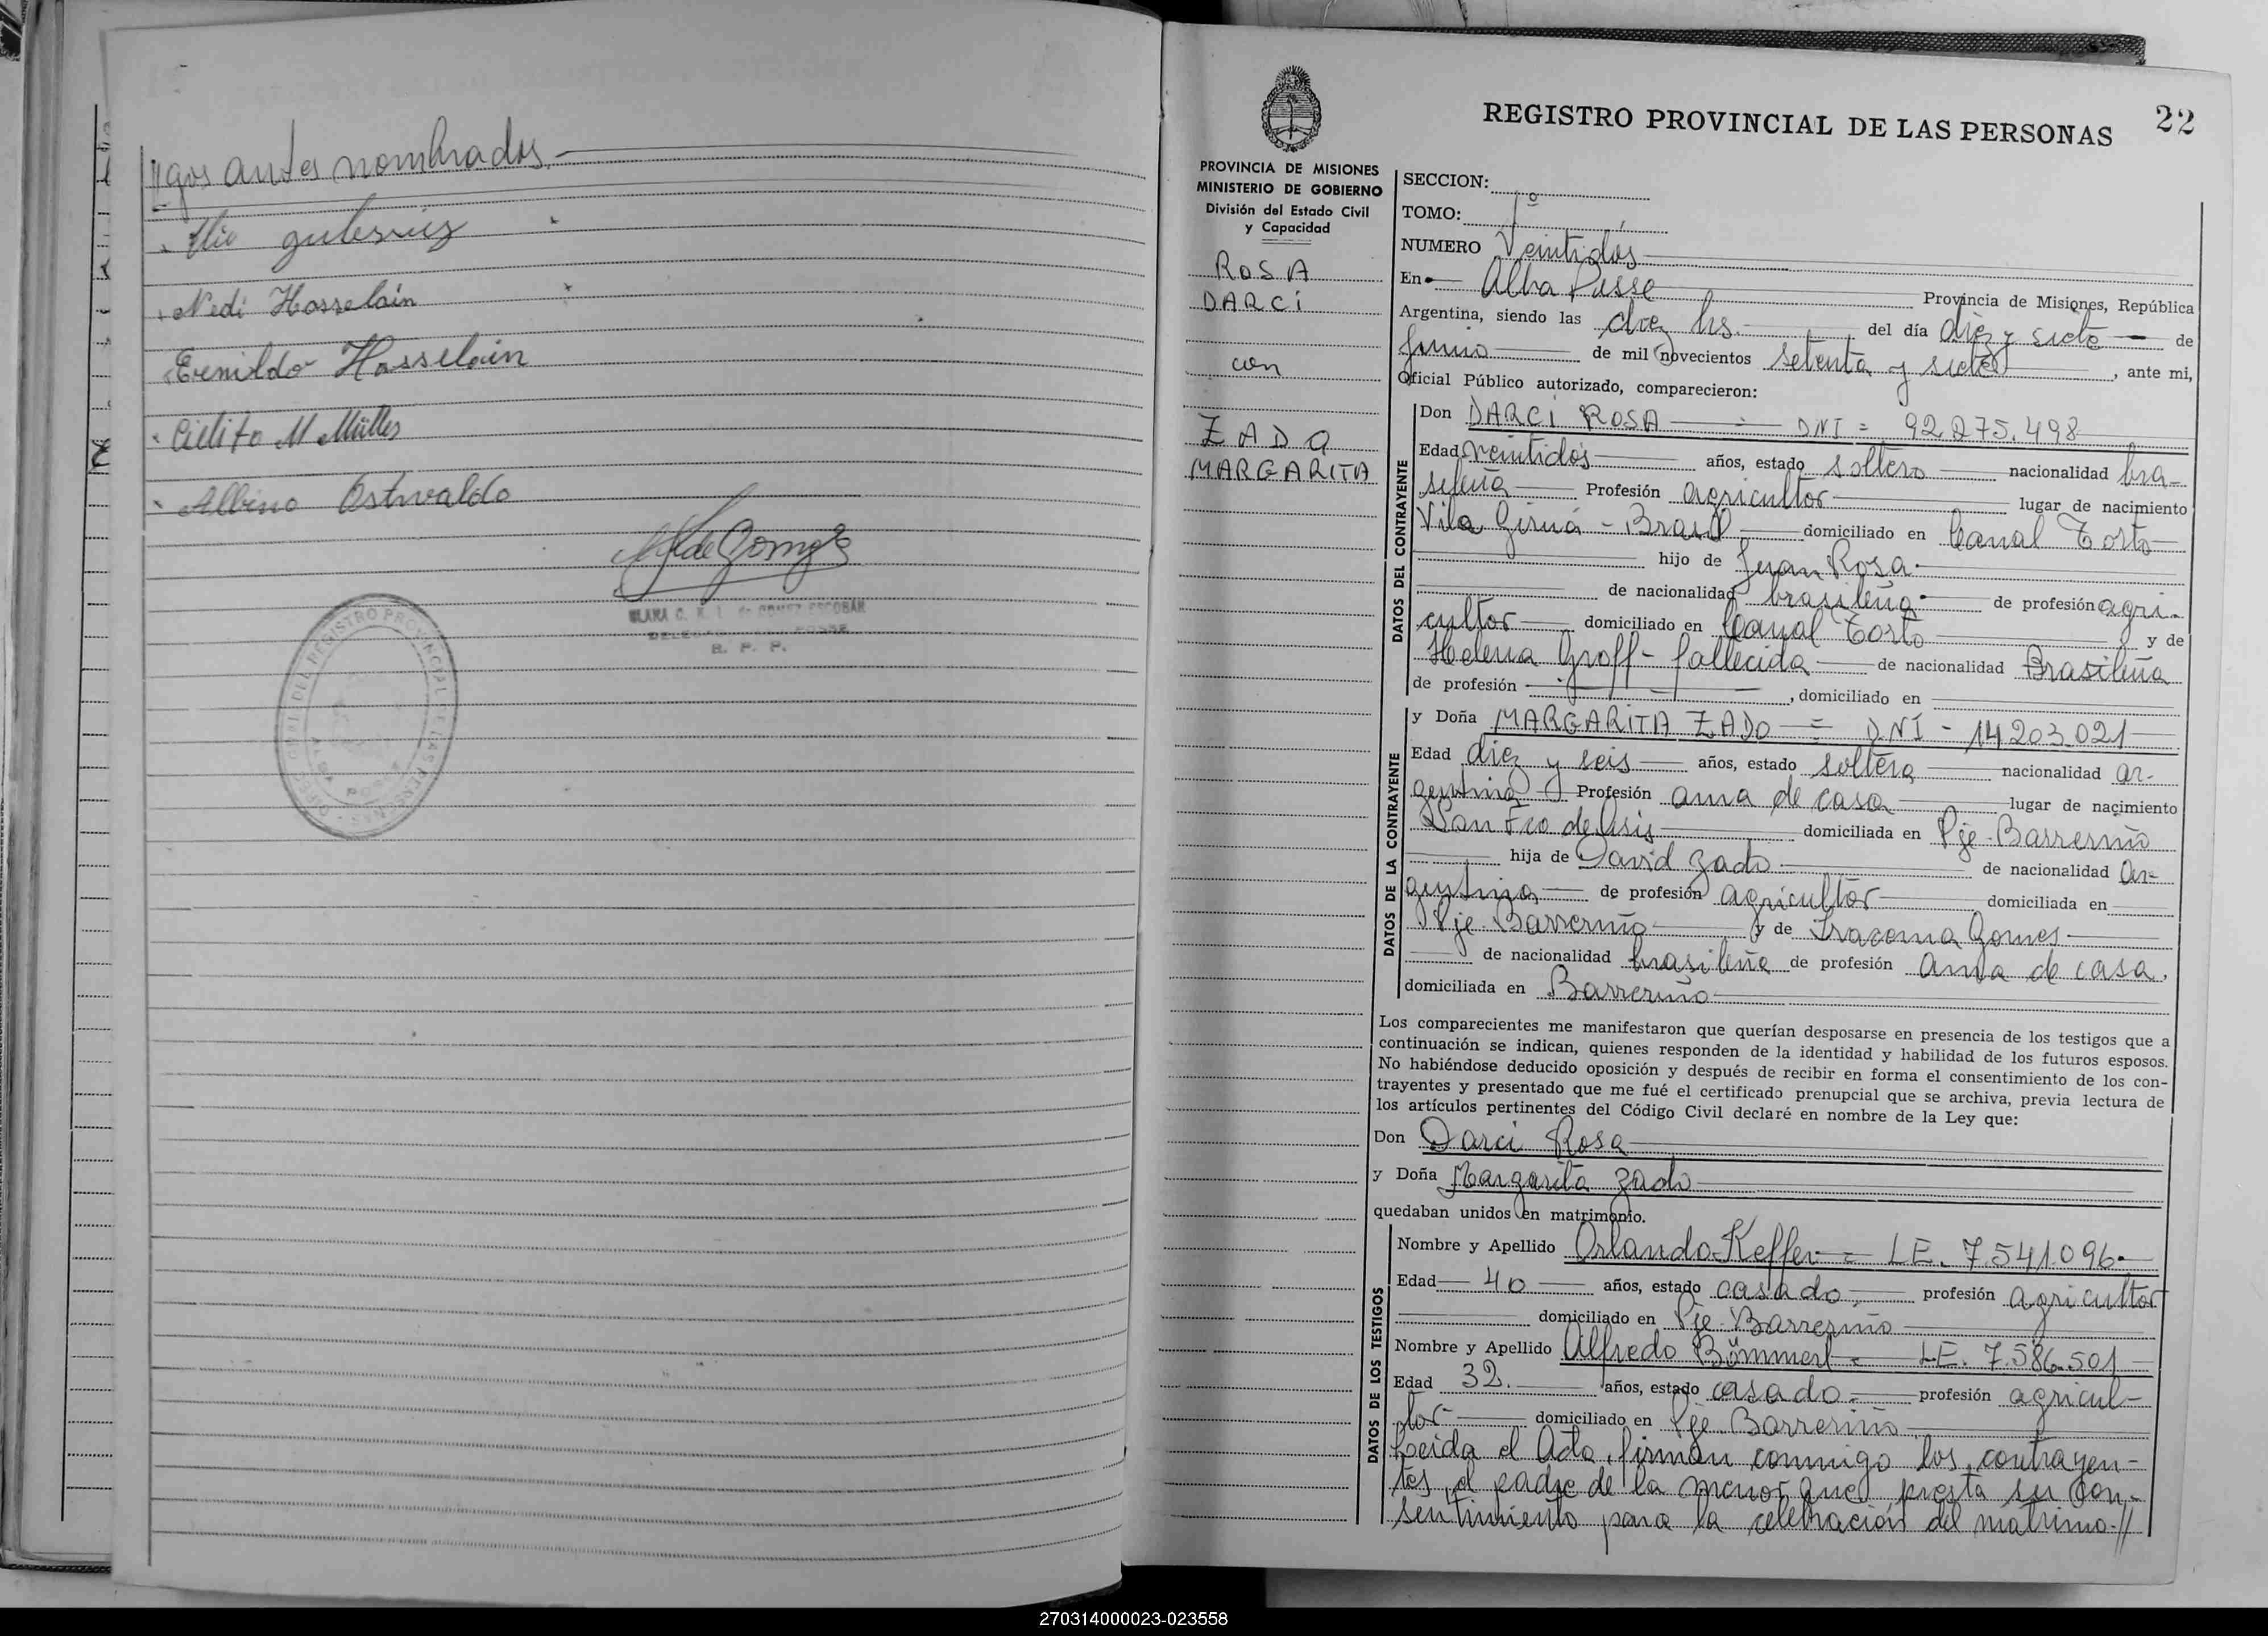 "gos antes nombrados.
Nedi Hasselain
Erenildo Hasselain
Cielito M Müller
Albino Ostwaldo
G. de Gomez
C. N. I. de GOMEZ ESCOBAR
R. P. P.
REGISTRO PROVINCIAL DE LAS PERSONAS
22
PROVINCIA DE MISIONES
MINISTERIO DE GOBIERNO
División del Estado Civil
y Capacidad
ROSA
DARCI
con
ZADO
MARGARITA
SECCION:
TOMO: 1º
NUMERO Veintidós
En Alba Posse Provincia de Misiones, República
Argentina, siendo las diez hs. del día diez y siete de
Junio de mil novecientos setenta y siete, ante mi,
Oficial Público autorizado, comparecieron:
DATOS DEL CONTRAYENTE
Don DARCI ROSA = DNI = 92.275.498
Edad veintidós años, estado soltero nacionalidad bra-
sileña Profesión agricultor lugar de nacimiento
Vila Giruá - Brasil domiciliado en Canal Torto
hijo de Juan Rosa.
de nacionalidad brasileña de profesión agri-
cultor domiciliado en Canal Torto y de
Helena Groff - fallecida de nacionalidad Brasileña
de profesión , domiciliado en
DATOS DE LA CONTRAYENTE
y Doña MARGARITA ZADO = DNI - 14.203.021
Edad diez y seis años, estado soltera nacionalidad ar-
gentina Profesión ama de casa lugar de nacimiento
San Fco de Asis domiciliada en Pje. Barreriño
hija de David Zado de nacionalidad Ar-
gentina de profesión agricultor domiciliada en
Pje. Barreriño y de Iracema Gomes
de nacionalidad brasileña de profesión ama de casa,
domiciliada en Barreriño
Los comparecientes me manifestaron que querían desposarse en presencia de los testigos que a
continuación se indican, quienes responden de la identidad y habilidad de los futuros esposos.
No habiéndose deducido oposición y después de recibir en forma el consentimiento de los con-
trayentes y presentado que me fué el certificado prenupcial que se archiva, previa lectura de
los artículos pertinentes del Código Civil declaré en nombre de la Ley que:
Don Darci Rosa
y Doña Margarita Zado
quedaban unidos en matrimonio.
DATOS DE LOS TESTIGOS
Nombre y Apellido Orlando Keffer = LE. 7.541.096.
Edad 40 años, estado casado profesión agricultor
domiciliado en Pje. Barreriño
Nombre y Apellido Alfredo Bömmerl - LE. 7.586.501
Edad 32. años, estado casado profesión agricul-
tor domiciliado en Pje. Barreriño
Leida el Acta, firman conmigo los contrayen-
tes, el padre de la menor que presta su con-
sentimiento para la celebración del matrimo-//
270314000023-023558